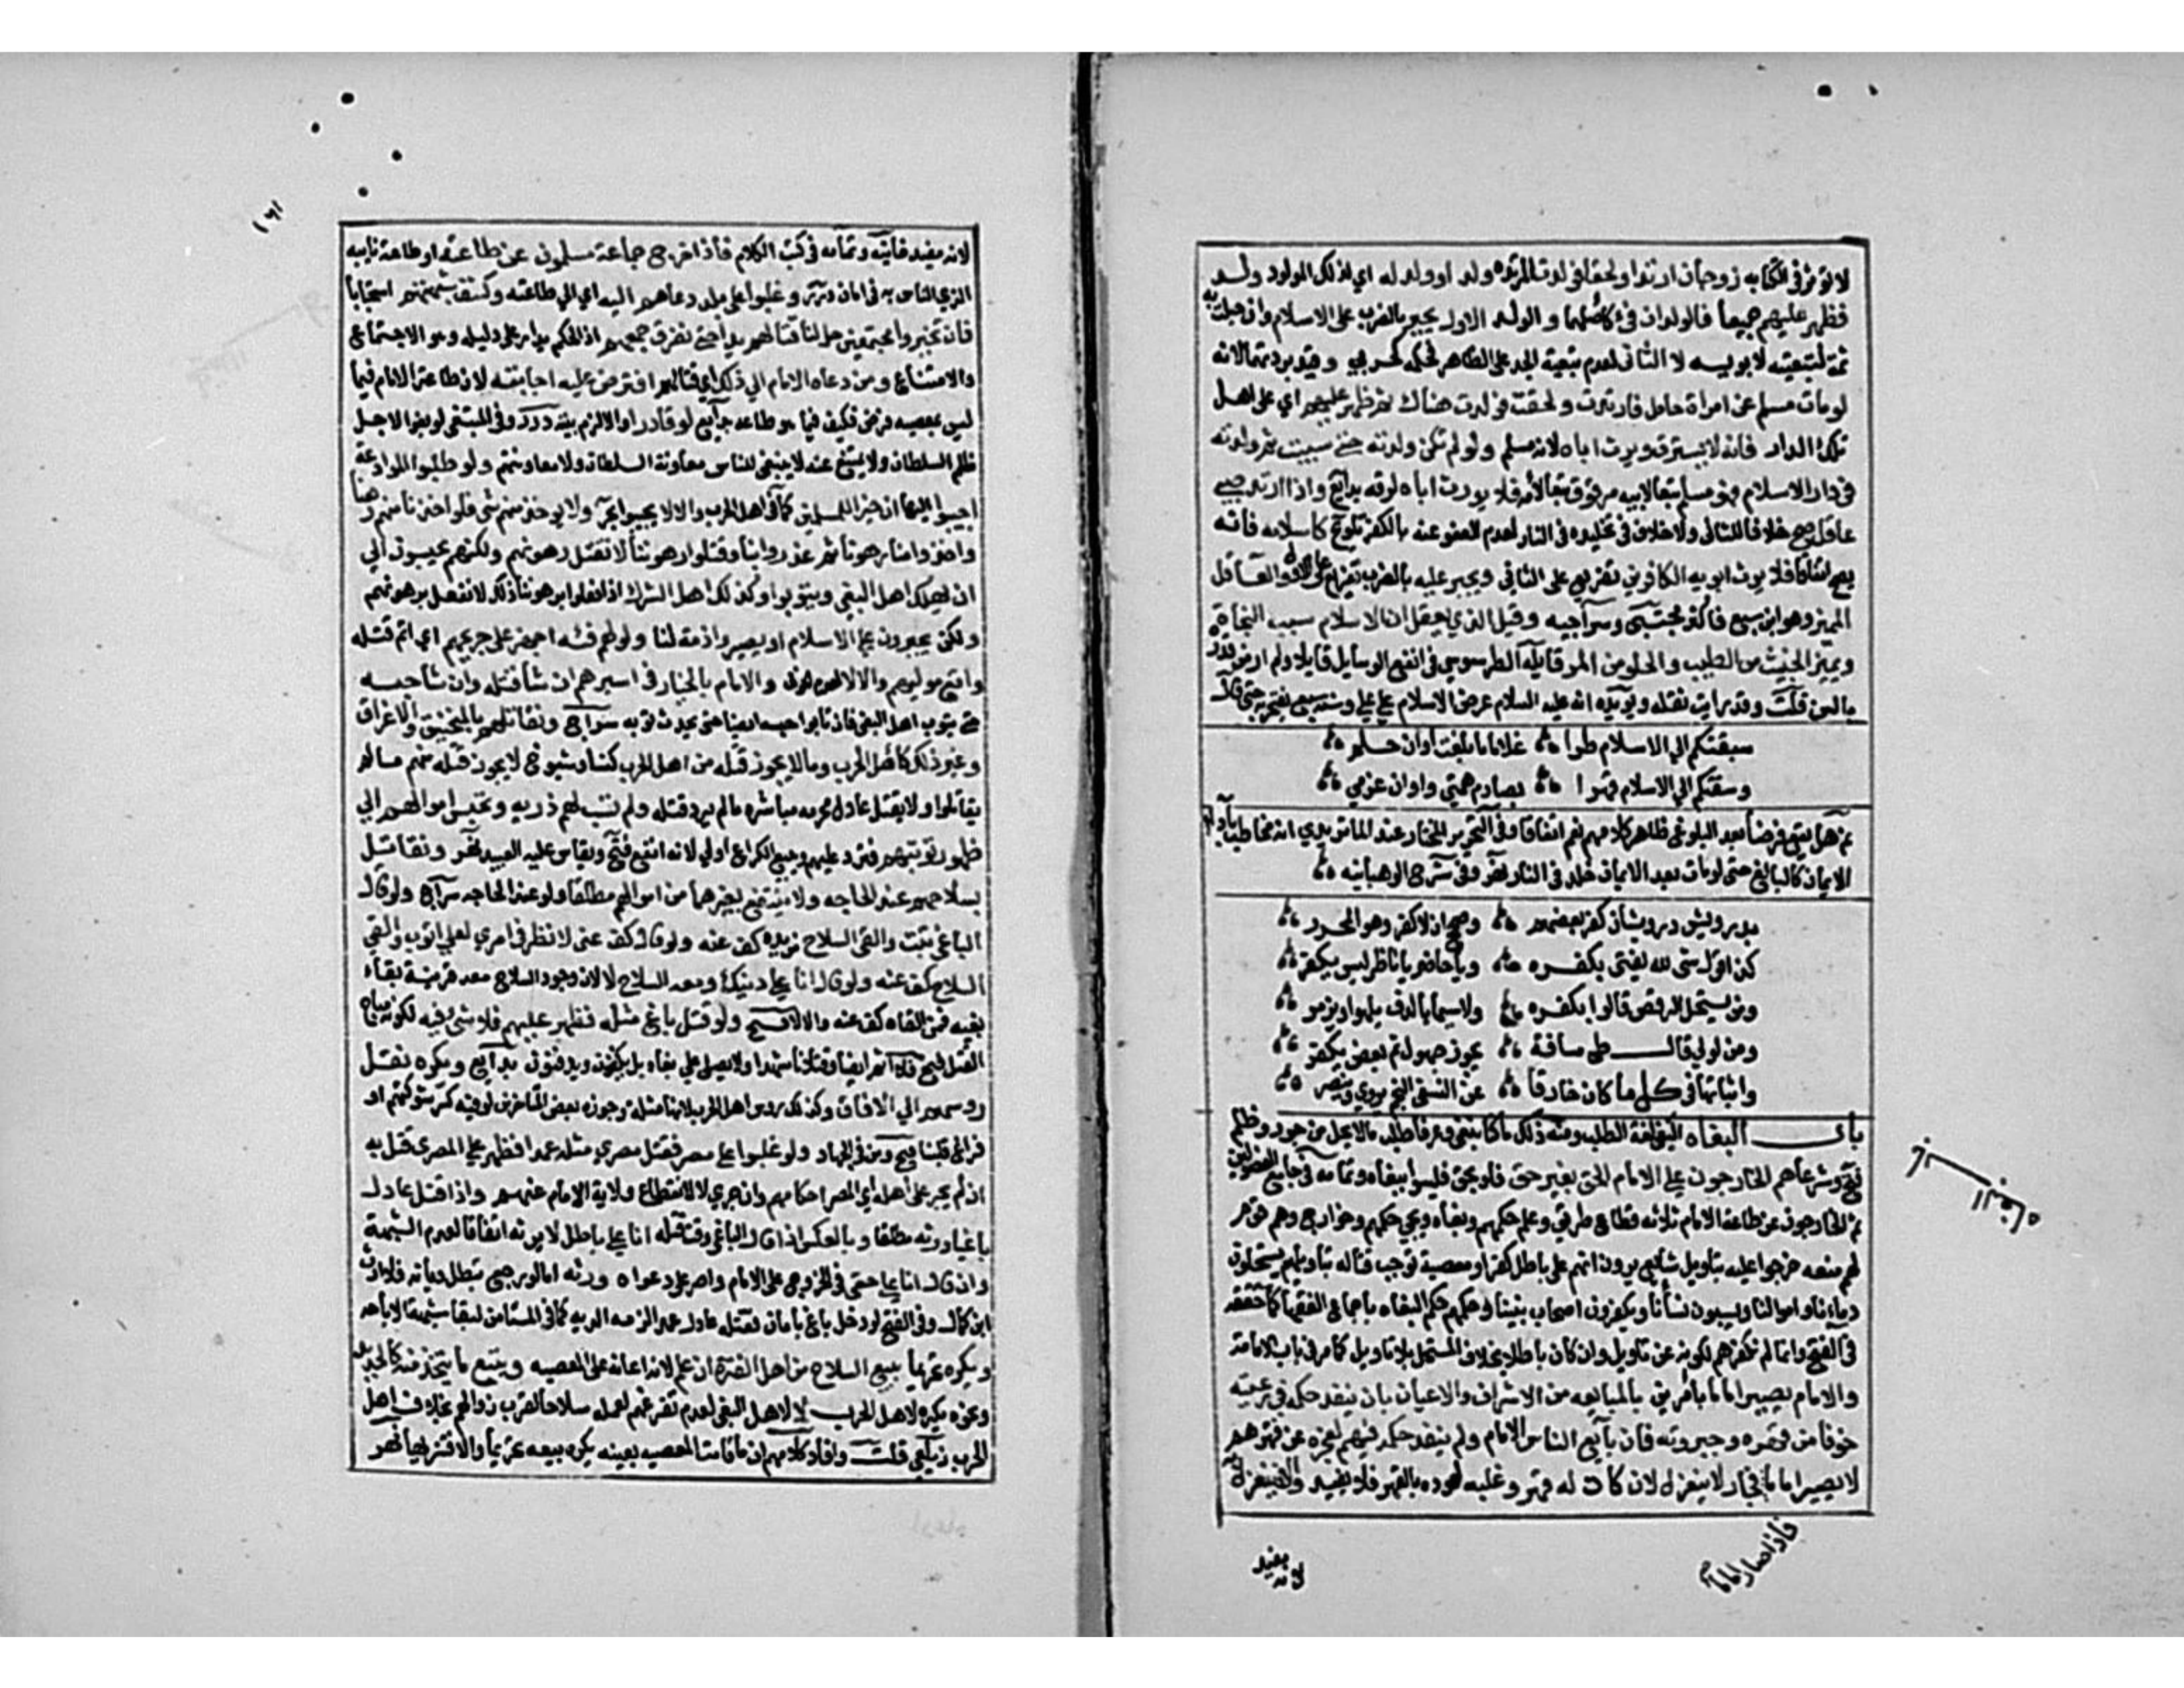 لا تؤثر في الكتابه زوجان ارتدا ولحقا فولدت المرتده ولد او ولد له اي لذلك المولود ولد
فظهر عليهم جميعا فالولدان فئ كاصلهما والولد الاول يجبر بالضرب على الاسلام وان حبلت به
ثمة لتبعيته لابويه لا الثاني لعدم تبعية الجد على الظاهر فحكمه كحربي وقيد بردتهما لانه
لو مات مسلم عن امراة حامل فارتدت ولحقت فولدت هناك ثم ظهر عليهم اي على اهل
تلك الدار فانه لا يسترق ويرث اباه لانه مسلم ولو لم تكن ولدته حتى سبيت ثم ولدته
في دار الاسلام فهو مسلم تبعا لابيه مرقوق تبعا لامه فلا يرث اباه لرقه بدايع واذا ارتد صبي
عاقل صح خلافا للثاني ولا خلاف في تخليده في النار لعدم العفو عنه بالكفر تلويح كاسلامه فانه
يصح اتفاقا فلا يرث ابويه الكافرين تفريع على الثاني ويجبر عليه بالضرب تفريع على الاول والعاقل
المميز وهو ابن سبع فاكثر مجتبى وسراجيه وقيل الذي يعقل ان الاسلام سبب النجاة
ويميز الخبيث من الطيب والحلو من المر قايله الطرسوسي في انفع الوسايل قايلا ولم ار من قدره
بالسن قلت وقد رايت نقله ويويده انه عليه السلام عرض الاسلام على علي وسنه سبع يفتخر به حتى قال
سبقتكم الى الاسلام طرا غلاما ما بلغت اوان حلم
وسقتكم الي الاسلام قهرا بصارم همتي واوان عزمي
ثم هل يقع فرضا بعد البلوغ ظاهر كلامهم نعم اتفاقا وفي التحرير المختار عند الماتريدي انه مخاطب باداء
الايمان كالبالغ حتى لو مات بعد الايمان خلد في النار نهر وفي شرح الوهبانيه
بدرويش درويشان كفر بعضهم وصحح ان لا كفر وهو المحرر
كذا قول شي لله قيل بكفره ويا حاضر يا ناظر ليس يكفر
ومن يستحل الرقص قالوا بكفره ولا سيما بالدف يلهو ويزمر
ومن لولي قال طي مسافة يجوز جهول ثم بعض يكفر
واثباتها في كل ما كان خارقا عن النسفي النجم يروي وينصر
باب البغاه البغي لغة الطلب ومنه ذلك ما كنا نبغي وعرفا طلب ما لا يحل من جور وظلم
فتح وشرعا هم الخارجون على الامام الحق بغير حق فلو بحق فليسوا ببغاه وتمامه في جامع الفصولين
ثم الخارجون عن طاعة الامام ثلاثه قطاع طريق وعلم حكمهم وبغاه ويجي حكمهم وخوارج وهم قوم
لهم منعه خرجوا عليه بتاويل يرون انهم على باطل كفر او معصية توجب قتاله بتاويلهم يستحلون
دماءنا واموالنا ويسبون نسأنا ويكفرون اصحاب نبينا وحكمهم حكم البغاه باجماع الفقها كما حققه
في الفتح وانما لم نكفرهم لكونه عن تاويل وان كان باطلا بخلاف المستحل بلا تاويل كما مر في باب الامامة
والامام يصير اماما بامرين بالمبايعه من الاشراف والاعيان بان ينفذ حكمه في رعيته
خوفا من قهره وجبروته فان بايع الناس الامام ولم ينفذ حكمه فيهم لعجزه عن قهرهم
لا يصير اماما فجار لا ينعزل لان كان له قهر وغلبه لعوده بالقهر فلا يفيد والا ينعزل به
فاذا صار اماما
لانه مفيد
باب البغاه
١٦١
لانه مفيد خانيه وتمامه في كتب الكلام فاذا خرج جماعة مسلمون عن طاعته او طاعة نايبه
الذي الناس به في امان درر وغلبوا على بلد دعاهم اليه اي الي طاعته وكشف شبهتهم استحبابا
فان تحيزوا مجتمعين حل لنا قتالهم بداحتى نفرق جمعهم اذ الحكم يدار على دليله وهو الاجتماع
والامتناع ومن دعاه الامام الي ذلك اي قتالهم افترض عليه اجابته لان طاعة الامام فيما
ليس بمعصيه فرض فكيف فيما هو طاعه بدايع لو قادرا والا لزم بيته درر وفي المبتغى لو بغوا لاجل
ظلم السلطان ولا يمتنع عنه لا ينبغي للناس معاونة السلطان ولا معاونتهم ولو طلبوا الموادعة
اجيبوا اليها ان خيرا للمسلمين كما في اهل الحرب والا لا يجيبوا بحر ولا يوخذ منهم شي فلو اخذنا منهم رهنا
واخذوا منا رهونا ثم غدروا بنا وقتلوا رهوننا لا نقتل رهونهم ولكنهم يحبسون الي
ان يهلك اهل البغي او يتوبوا وكذلك اهل الشرك اذا فعلوا برهوننا ذلك لا نفعل برهونهم
ولكن يجبرون على الاسلام او يصيروا ذمة لنا ولو لهم فئه اجهز على جريحهم اي اتم قتله
واتبع موليهم والا لا والامام بالخيار في اسيرهم ان شا قتله وان شا حبسه
حتى يتوب اهل البغي فان تابوا حبسه ايضا حتى يحدث توبه سراج ونقاتلهم بالمنجنيق والاغراق
وغير ذلك كاهل الحرب وما لا يجوز قتله من اهل الحرب كنسا وشيوخ لا يجوز قتله منهم ما لم
يقاتلوا ولا يقتل عادل محرمه مباشره ما لم يرد قتله ولم تسب لهم ذريه وتحبس اموالهم الي
ظهور توبتهم فترد عليهم وبيع الكراع اولي لانه انفع فتح ويقاس عليه العبيد نهر ونقاتل
بسلاحهم عند الحاجه ولا ينتفع بغيرهما من اموالهم مطلقا ولو عند الحاجه سراج ولو قال
الباغي تبت والقى السلاح من يده كف عنه ولو قال كف عني لانظر في امري لعلي اتوب والقى
السلاح كف عنه ولو قال انا على دينك ومعه السلاح لا لان وجود السلاح معه قرينة بقاء
بغيه فمتى القاه كف عنه والا لا فتح ولو قتل باغ مثله فظهر عليهم فلا شي فيه لكونه مباح
القتل فتح فلا اثم ايضا وقتلانا شهدا ولا يصلى على بغاه بل يكفنون ويدفنون بدايع ويكره نقل
روسهم الي الافاق وكذلك روس اهل الحرب لانها مثله وجوزه بعض المتاخرين لو فيه كسر شوكتهم او
فراغ قلبنا فتح ومر في الجهاد ولو غلبوا على مصر فقتل مصري مثله عمدا فظهر على المصر قتل به
ان لم يجر على اهله اي المصر احكامهم وان جري لا لانقطاع ولاية الامام عنهم واذا قتل عادل
باغيا ورثه مطلقا وبالعكس اذا قال الباغي وقت قتله انا على باطل لا يرثه اتفاقا لعدم الشبهة
وان قال انا على حق في الخروج على الامام واصر على دعواه ورثه اما لو رجع تبطل ديانته فلا ارث
ابن كمال وفي الفتح لو دخل باغ بامان فقتله عادل عمدا لزمه الديه كما في المستامن لبقا شبهة الاباحه
ويكره تحريما بيع السلاح من اهل الفتنة ان علم لانه اعانه على المعصيه وبيع ما يتخذ منه كالحديد
ونحوه يكره لاهل الحرب لا لاهل البغي لعدم تفرغهم لعمله سلاحا لقرب زوالهم بخلاف اهل
الحرب زيلعي قلت وافاد كلامهم ان ما قامت المعصيه بعينه يكره بيعه تحريما والا فتنزيها نهر